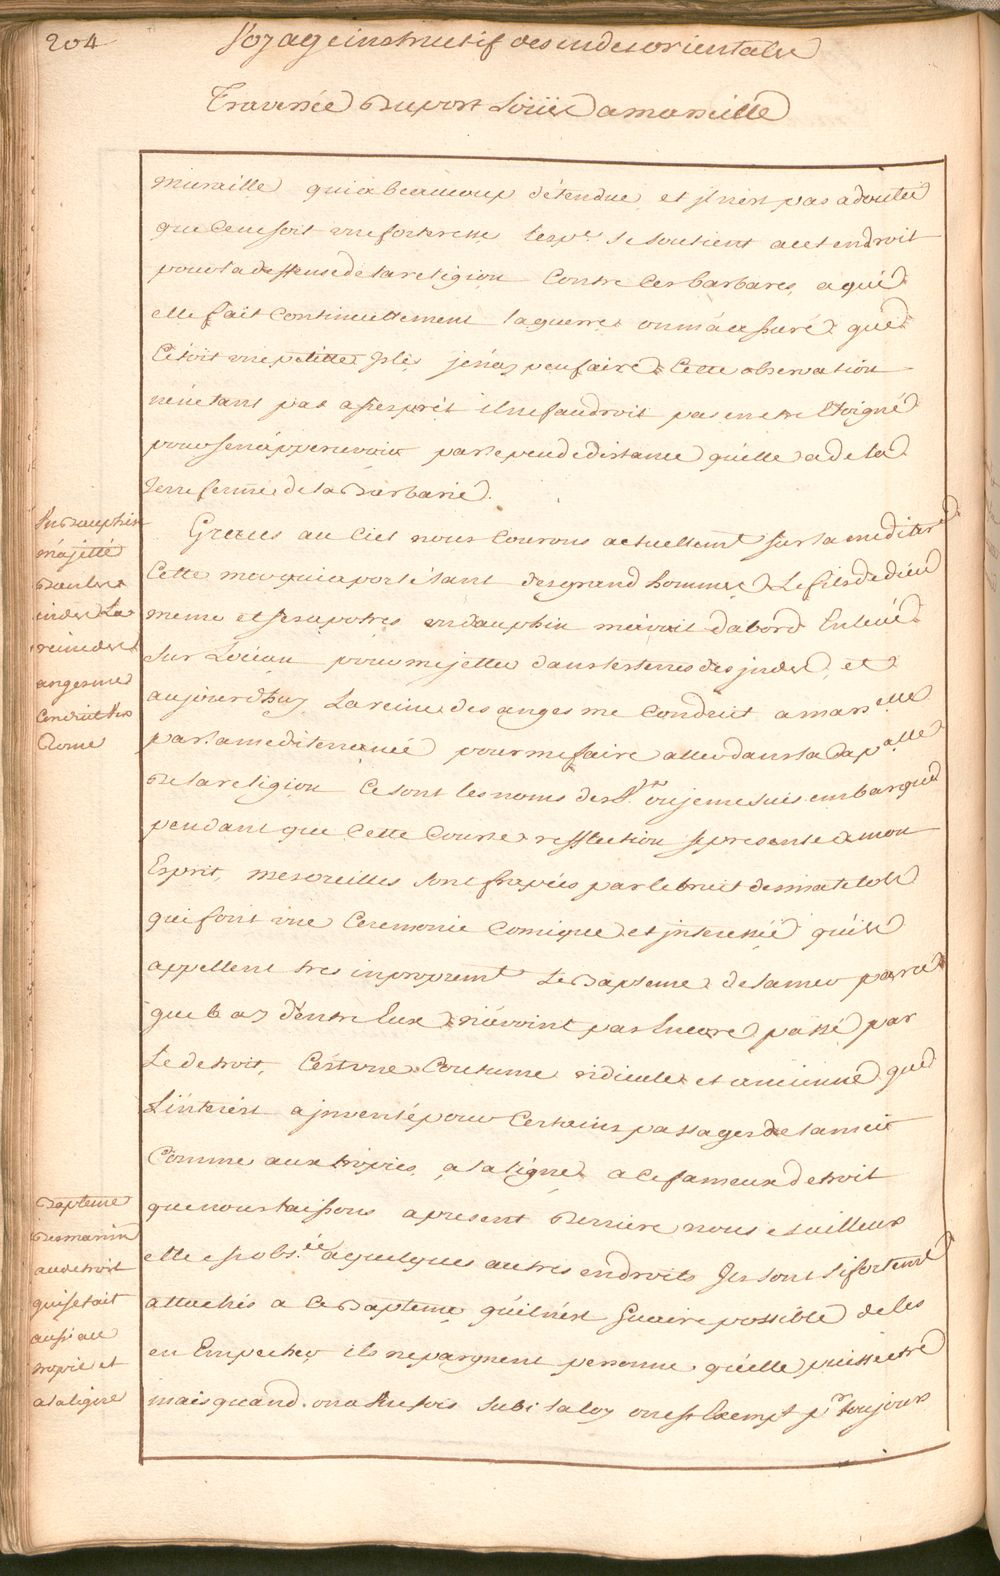 204
Voyage instructif des indes orientales
Traversée Du port Loüis a marseille
muraille qui a beaucoup détendue et jl nest pas a douter
que ce ne soit une forteresse lespe. se soutient a cet endroit
pour la deffense de la religion Contre les barbares, a qui
elle fait Continuellement la guerre on m'a assuré que
C'étoit une petitte Isle je n'ay peu faire Cette observation
n'en étant pas assés prét il ne faudroit pas en etre Eloigné
pour sen áppercevoir par le peu de distance qu'elle a de la
Terre ferme de la Barbarie.
Un Dauphin
májetté
Dans les
indes La
reine des
anges me
Conduit a
Rome
Graces au Ciel nous Courons actuellemt. sur la mediterée
Cette mer qui a porté tant des grand hommes Le fils de dieu
meme et ses apotres un dauphin m'avoit d'abord Enlevé
sur Locean pour me jetter dans les terres des indes, et
aujourdhuy La reine des anges me Conduit a marselle
par la mediterranée pour me faire aller dans la Capalle
De la religion Ce sont les noms des Vx. ou je me suis embarqué
pendant que Cette Courte reflection se presente a mon
Esprit, mes oreilles sont frapées par le bruit des matelots
qui font une Ceremonie Comique et jnteressée qu'ils
appellent tres inpropremt. Le Bapteme de la mer parce
que b as d'entre Eux n'avoint pas Encore passé par
Le detroit, C'est une Coutume ridicule et ancienne que
L'interest a jnventé pour Certains passages de la mer
Comme aux tropics, a la ligne a ce fameux detroit
Bapteme
Des marins
au detroit
qui se fait
aussi au
tropic et
a la ligne
que nous laissons a present Derriere nous et ailleurs
elle est obs.ée a quelques autres endroits Ils sont si fortemt
attachés a Ce Bapteme qu'il n'est Guaire possible de les
en Empecher ils n'epargnent personne qu'elle puisse etre
mais quand on a une fois subi la loy on est Exempt pr. toujours